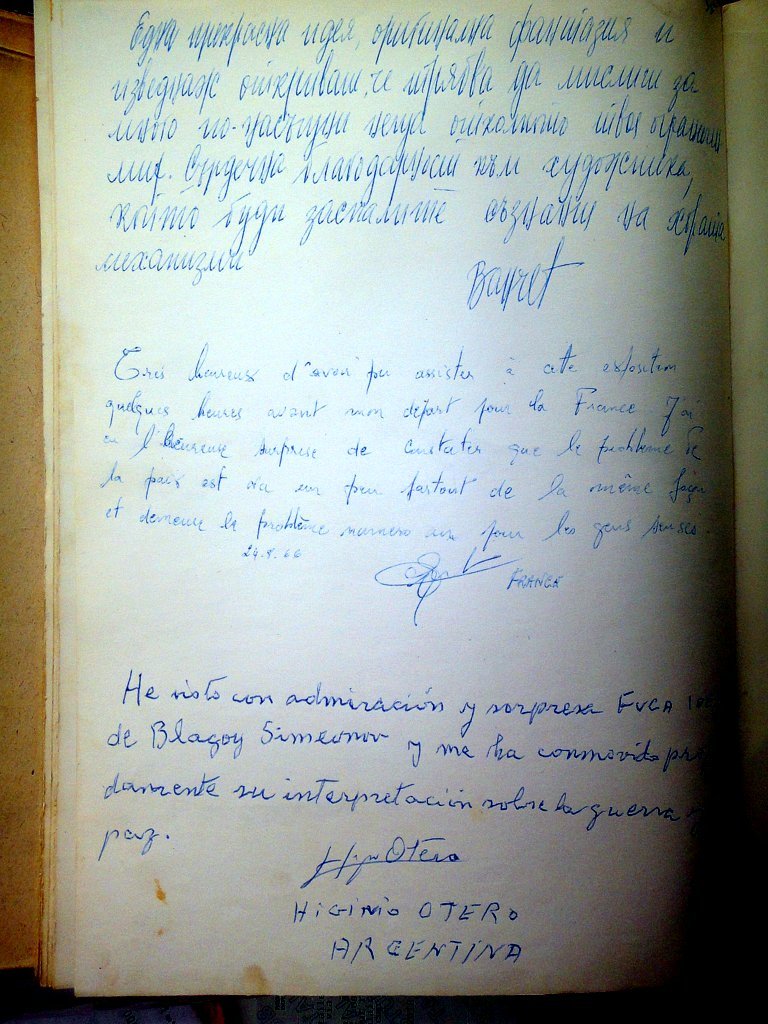 Една прекрасна идея, оригинална фантазия и
изведнъж откриваш, че трябва да мислиш за
много по-насъщни неща отколкото твоя ограничен
мир. Сърдечна благодарност към художника,
който буди заспалите съзнания на хората
механизми
Très heureux d'avoir pu assister à cette exposition
quelques heures avant mon départ pour la France. J'ai
eu l'heureuse surprise de constater que le problème de
la paix est vu un peu partout de la même façon
et demeure le problème numero un pour les gens sensés.
FRANCE
He visto con admiración y sorpresa
de Blagoy Simeonov y me ha conmovido pro
damente su interpretación sobre la guerra y
paz.
Otero
HIGINIO OTERO
ARGENTINA